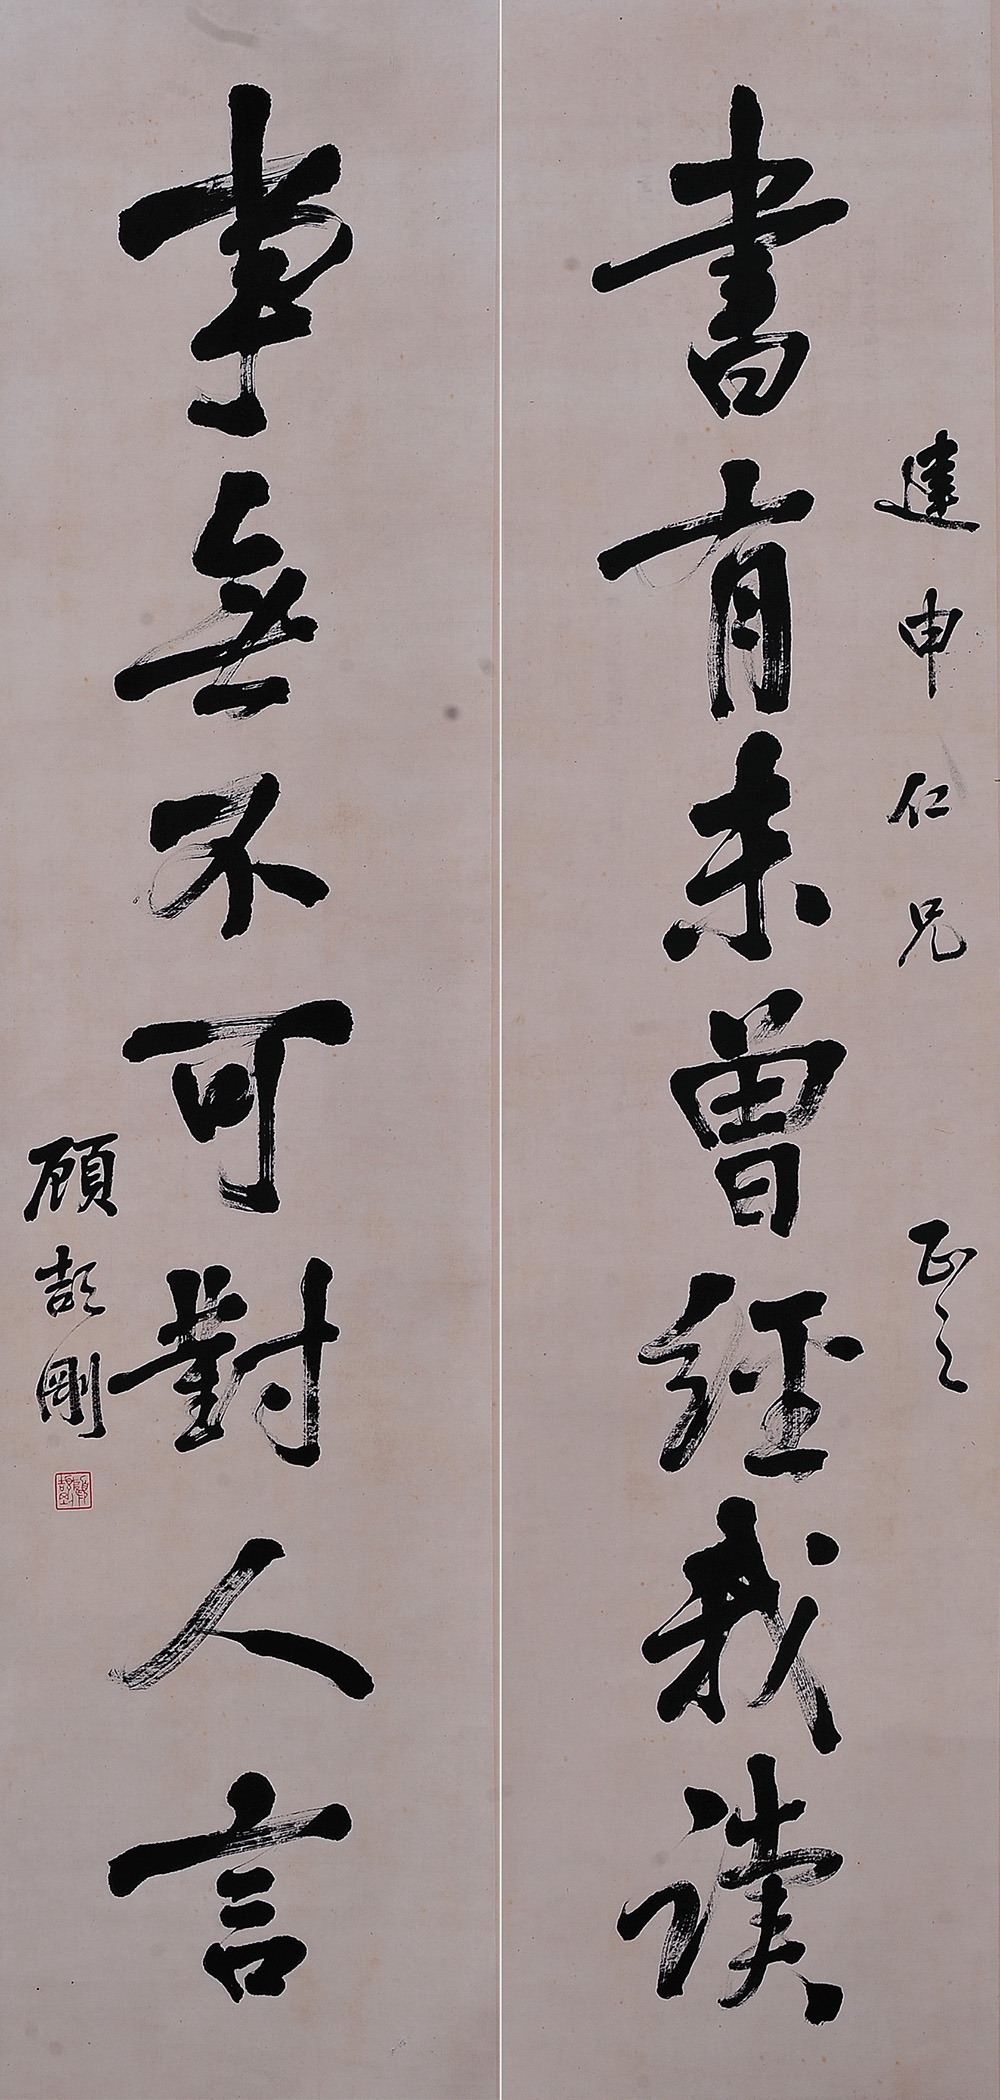 達申仁兄 正之
書有未曾經我讀
事無不可對人言
顧頡剛